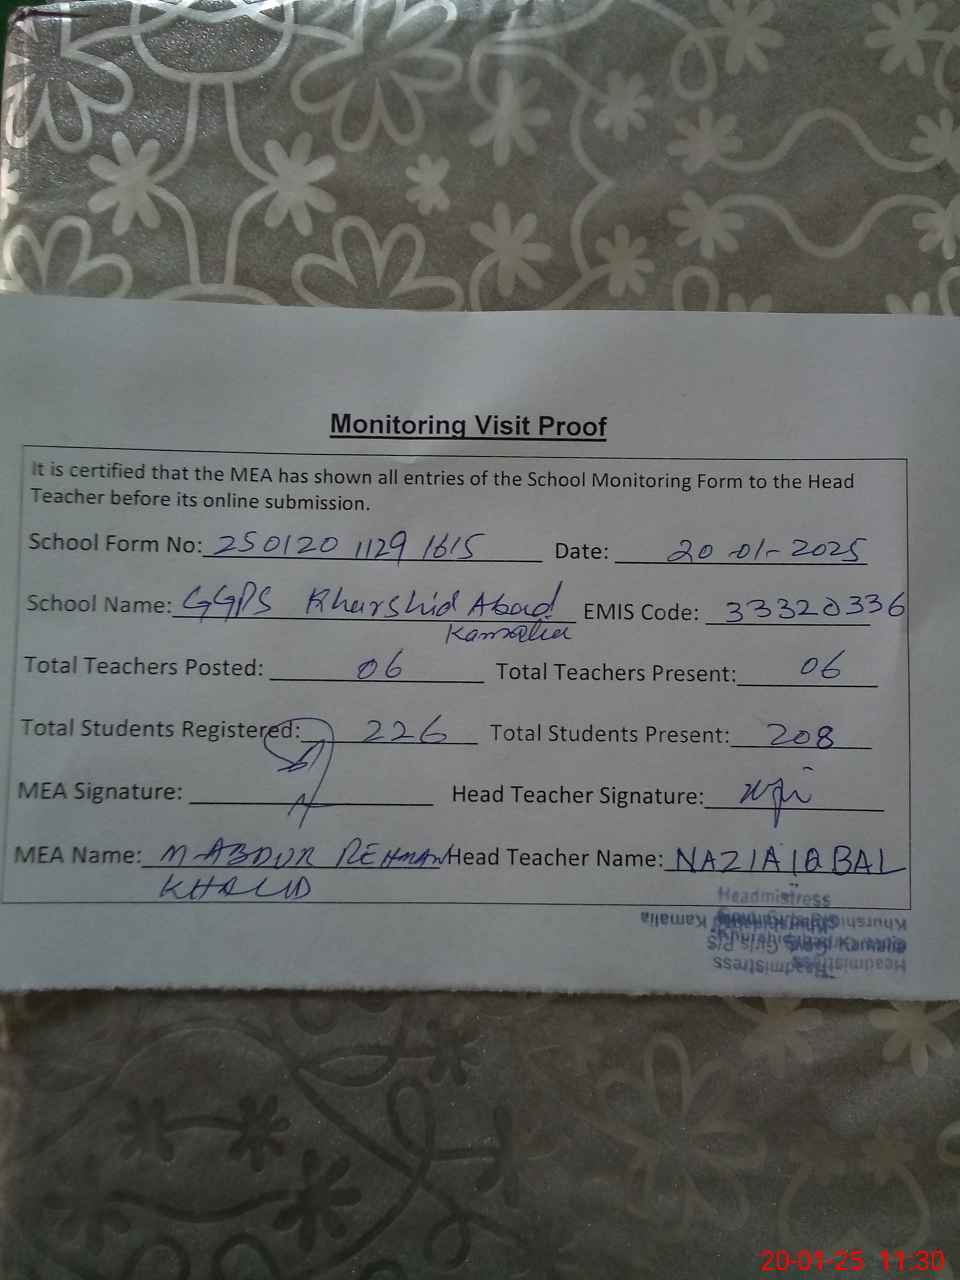 Monitoring Visit Proof
It is certified that the MEA has shown all entries of the School Monitoring Form to the Head
Teacher before its online submission.
School Form No: 250120 1129 1615 Date: 20-01-2025
School Name: GGPS Khurshid Abad EMIS Code: 33320336
Kamalia
Total Teachers Posted: 06 Total Teachers Present: 06
Total Students Registered: 226 Total Students Present: 208
MEA Signature: Head Teacher Signature:
MEA Name: M-ABDUR REHMAN Head Teacher Name: NAZIA IQBAL
KHALID
Headmistress
Kamalia
Headmistress
20-01-25 11:30